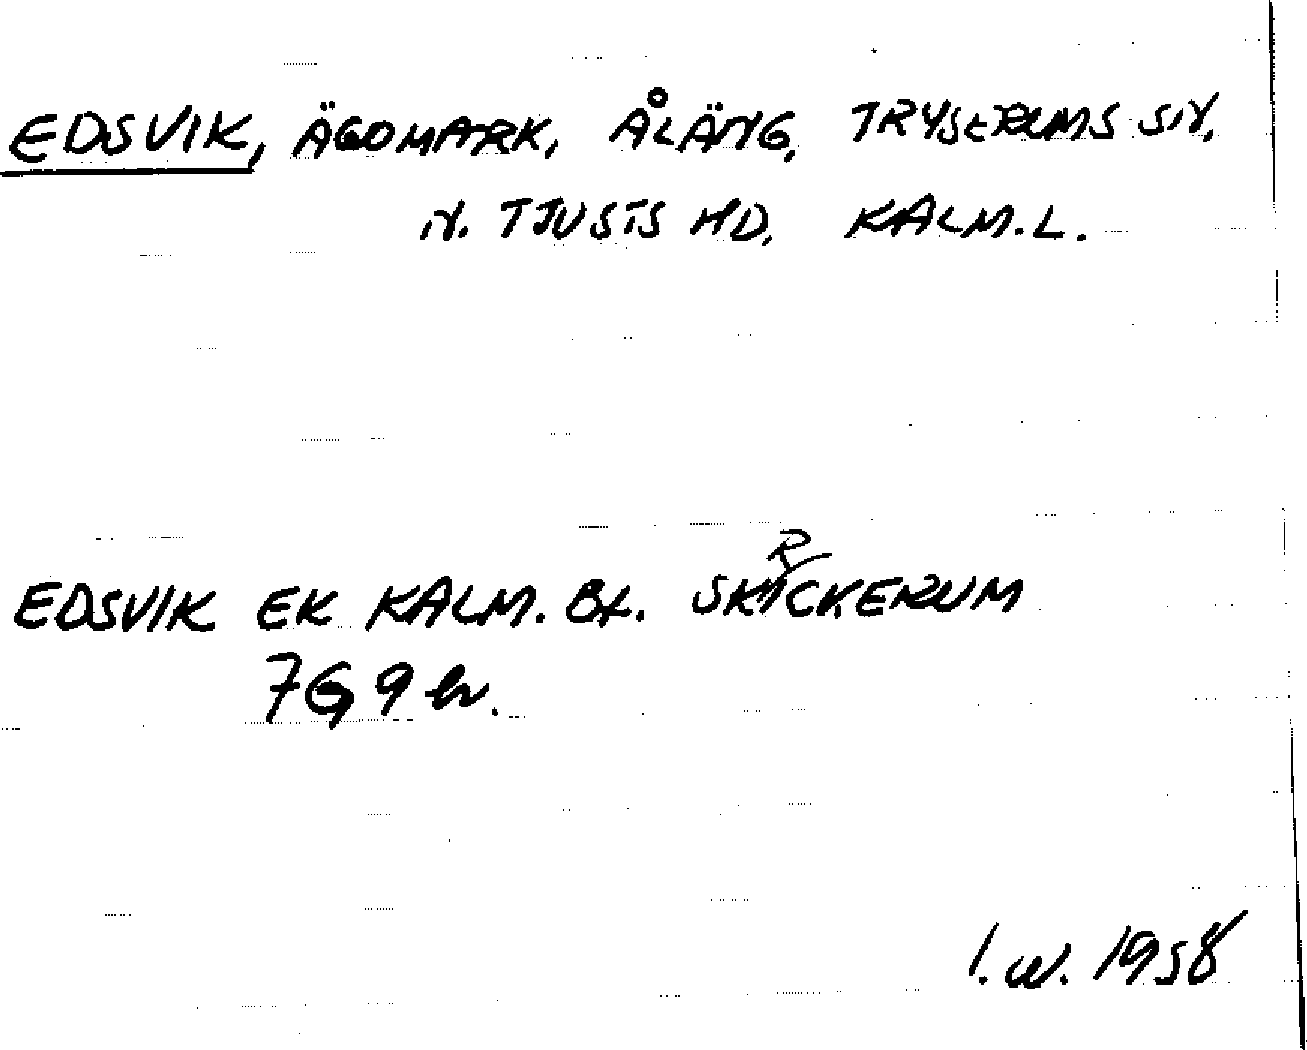 EDSVIK, ÄGOMARK, ÅLÄNG, TRYSERUMS SN,
N. TJUSTS HD, KALM. L.
EDSVIK EK KALM. BL. SKRICKERUM
7G9
1958